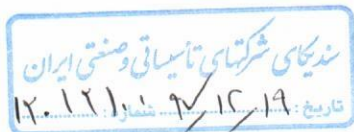 سندیکای شرکتهای تأسیساتی و صنعتی ایران
تاریخ: ۹۷/۱۲/۱۹ شماره: ۱۲۰۱۲۱۰۰